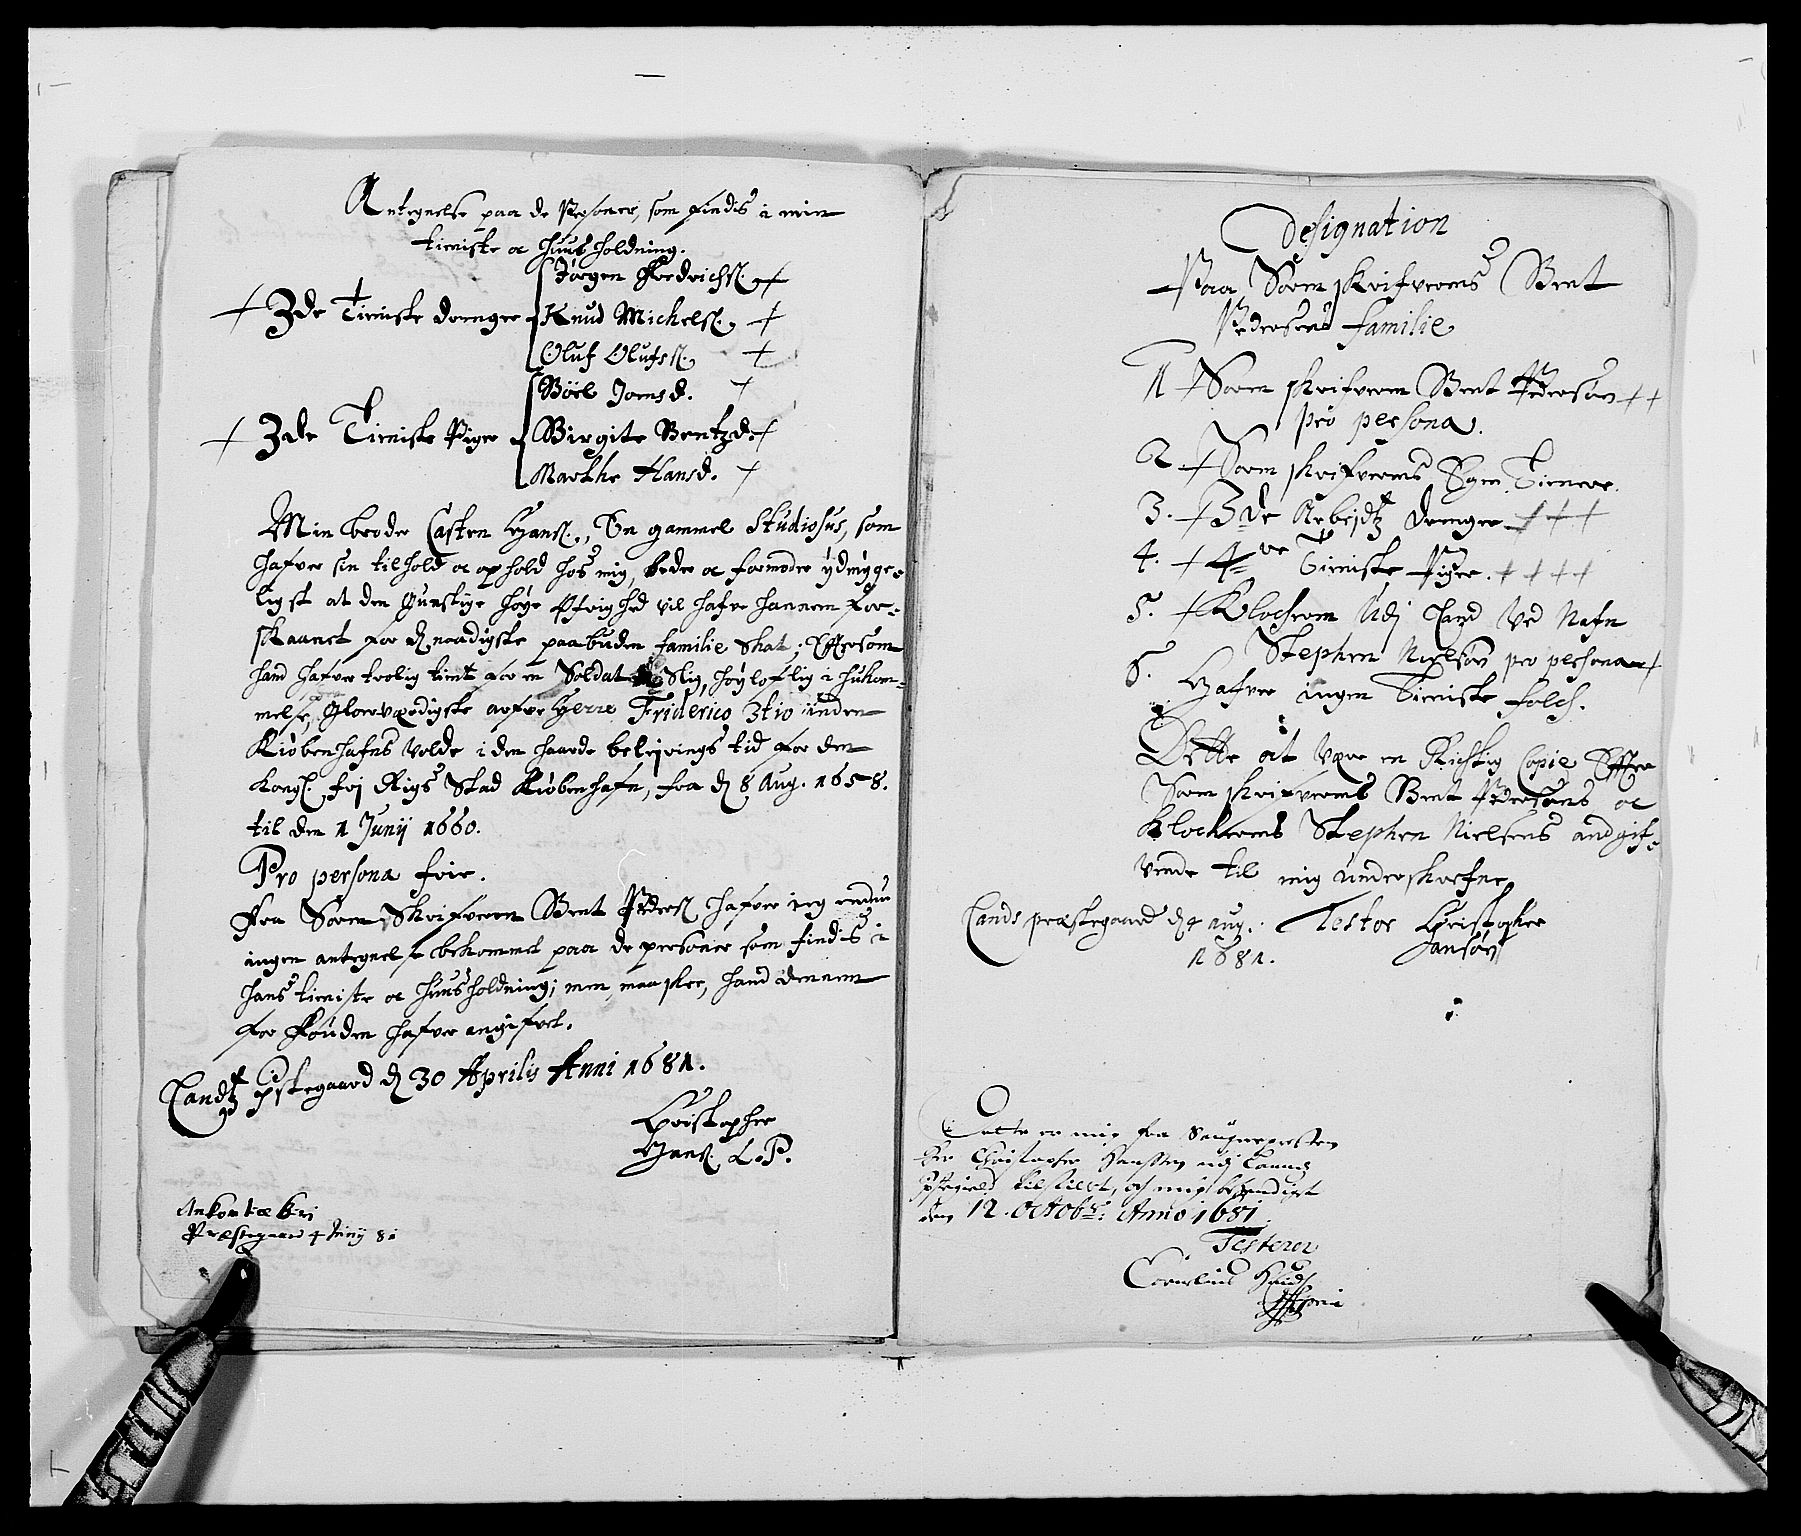 Antegnelse paa de Personer, som findis i min
tieniste oc huusholdning.
Jørgen Fredrichs. +
+ 3de Tieniste drenge Knud Michels. +
Oluf Olufss. +
Böel Joensd. +
+ 3de Tieniste Piger Birgite Bentzd. +
Marthe Hansd. +
Min broder Casten Hans., En gammel Studiosus, som
hafver sin tilhold oc ophold hos mig, beder oc formoder ydmyge-
ligst at den Gunstige høye Øfrighed vil hafve hannem for-
skaanet for d naadigste paabuden familie Skat; Efftersom
hand hafver trolig tient for en Soldat Slig, høyloflig i hukom-
melse, Glorværdigste arfve Herre Friderico 3tio inden
Kiøbenhafns Volde i den haarde beleyrings tid for den
Kongl. frj Rigs Stad Kiøbenhafn, fra d 8 Aug. 1658.
til den 1 Junij 1660.
Pro persona frie.
Fra Sorenskrifveren Bent Peders hafver ieg endnu
ingen antegnelse bekommet paa de personer som findis i
hans tieniste oc huusholdning; men maa skee, hand dennem
for Fouden hafver angifvet.
Landtz Pstegaard d 30 Aprilis Anni 1681.
Christopher
Hans. L.P.
Ankom
Præstegaard 4 Junij 81
Designation
Paa Sorenskrifverens Bent
Pedersens familie
1 + Sorenskrifveren Bent Pedersøn ++
pro persona.
2 + Sorenskrifverens Egen Tienere.
3. + 3de Arbejdtz drenge +++
4. + 4re Tieniste Piger. ++++
5. + Klocheren Udj Land Ved Nafn
Stephen Nielsøn pro persona +
6. Hafver ingen Tieniste folch.
Dette at være en Richtig Copie Effter
Sorenskrifverens Bent Pedersøns oc
Klocherens Stephen Nielsens andgif-
vende til mig underskrefne
Lands præstegaard d 4 Aug. Testor Christopher
1681. Hansøn
Dette er mig fra Sougnepresten
Her Christopher Hanssøn udj Landz
Pstegield tilstillet, och mig behendiget
den 12. Octobr: Anno 1681.
Testerer
Cornelius